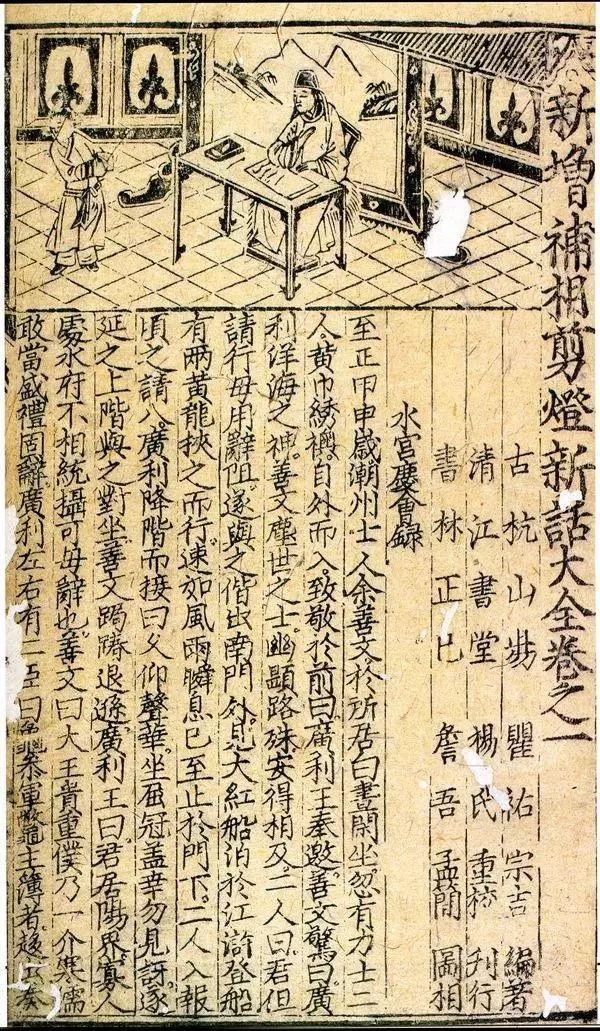 新增補相剪燈新話大全卷之一
古杭山瞿祐宗吉編著
清江書堂楊氏重校刊行
書林正己詹吾孟簡圖相
水宮慶會録
至正甲申歲潮州士人余善文於所居白晝閑坐忽有力士二
人黃巾綉襖自外而入致敬於前曰廣利王奉邀善文驚曰廣
利洋海之神善文塵世之士幽顯路殊安得相及二人曰君但
請行毋用辭阻遂與之偕出南門外見大紅船泊於江滸登船
有兩黃龍挾之而行速如風雨瞬息已至止於門下二人入報
頃之請入廣利降階而接曰久仰聲華坐屈冠盖幸勿見訝遂
延之上階與之對坐善文跼蹐退遜廣利王曰君居陽界寡人
處水府不相統攝可毋辭也善文曰大王貴重僕乃一介寒儒
敢當盛禮固辭廣利左右有二臣曰黿叅軍鱉主簿者趨出奏